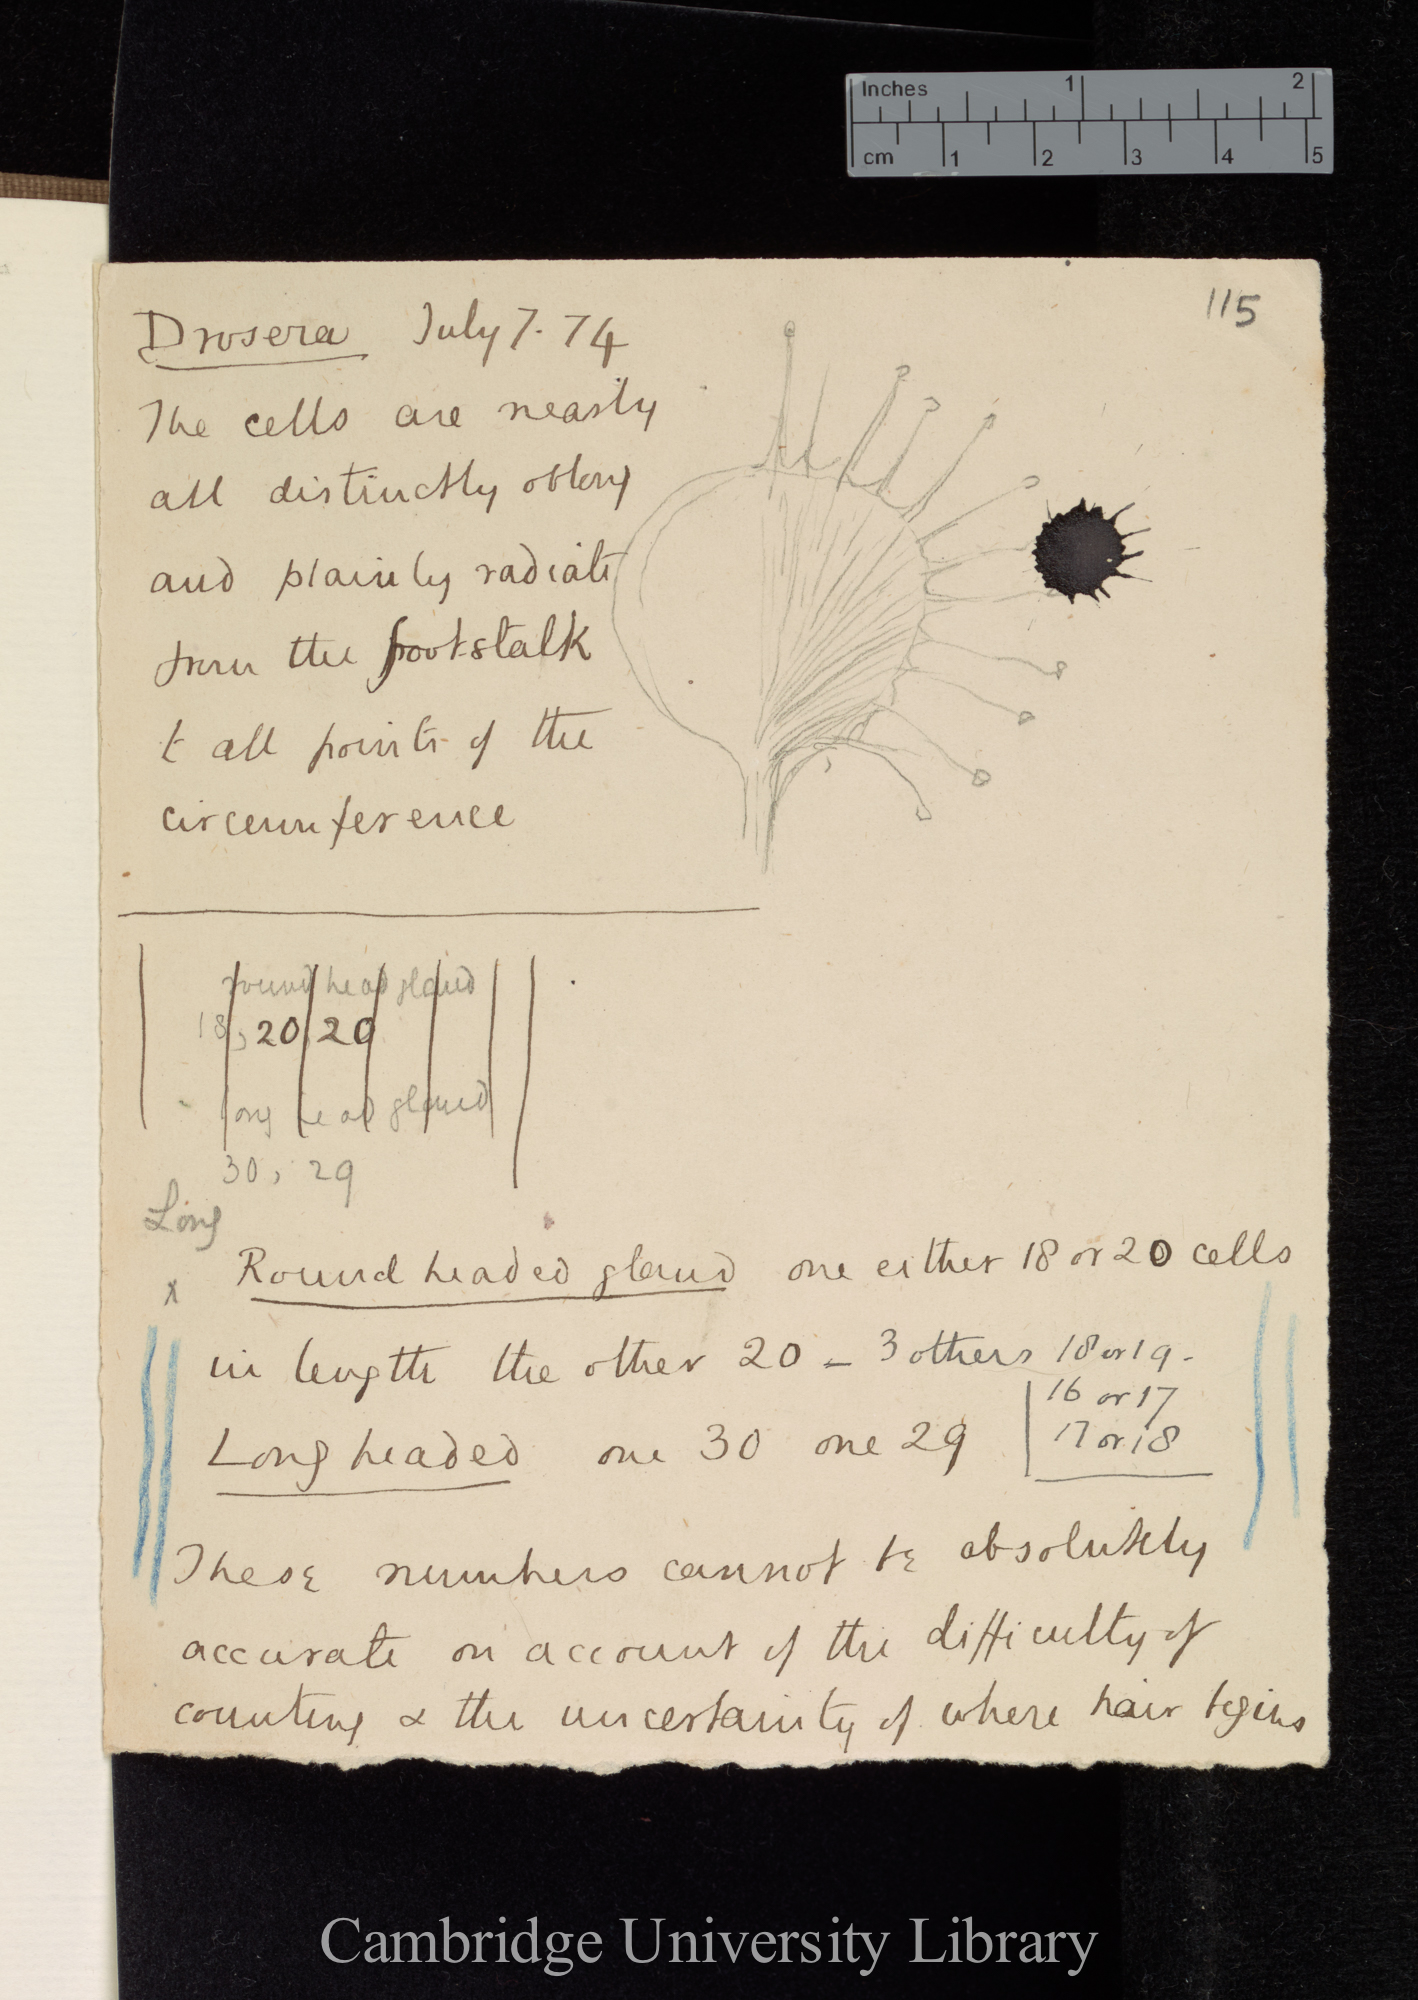 Inches 1 2
cm 1 2 3 4 5
115
Drosera July 7. 74
The cells are nearly
all distinctly oblong
and plainly radiate
from the footstalk
t all points of the
circumference
round head gland
18, 20, 20
long head gland
30, 29
Long
x
Round headed gland one either 18 or 20 cells
in length the other 20 – 3 others 18 or 19 -
16 or 17
17 or 18
Long headed one 30 one 29
These numbers cannot be absolutely
accurate on account of the difficulty of
counting & the uncertainity of where hair begins
Cambridge University Library